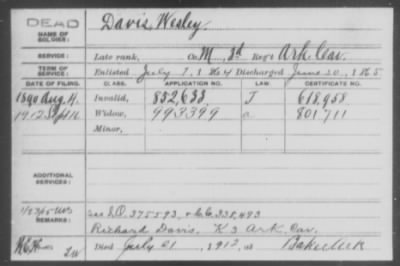 DEAD
NAME OF SOLDIER:
Davis, Wesley
SERVICE:
Late rank, Co. M, 3d Reg't Ark. Cav.
TERM OF SERVICE:
Enlisted July 7, 1864 Discharged June 30, 1865
DATE OF FILING. CLASS. APPLICATION NO. LAW. CERTIFICATE NO.
1890 Aug. 4. Invalid, 852,633 J 618,958
1912 Sept 16 Widow, 993399 a 801711
Minor,
ADDITIONAL SERVICES:
REMARKS:
see I.O. 375593, & C.C. 338,493
Richard Davis, K 3 Ark. Cav.
Died July 21, 1912, at